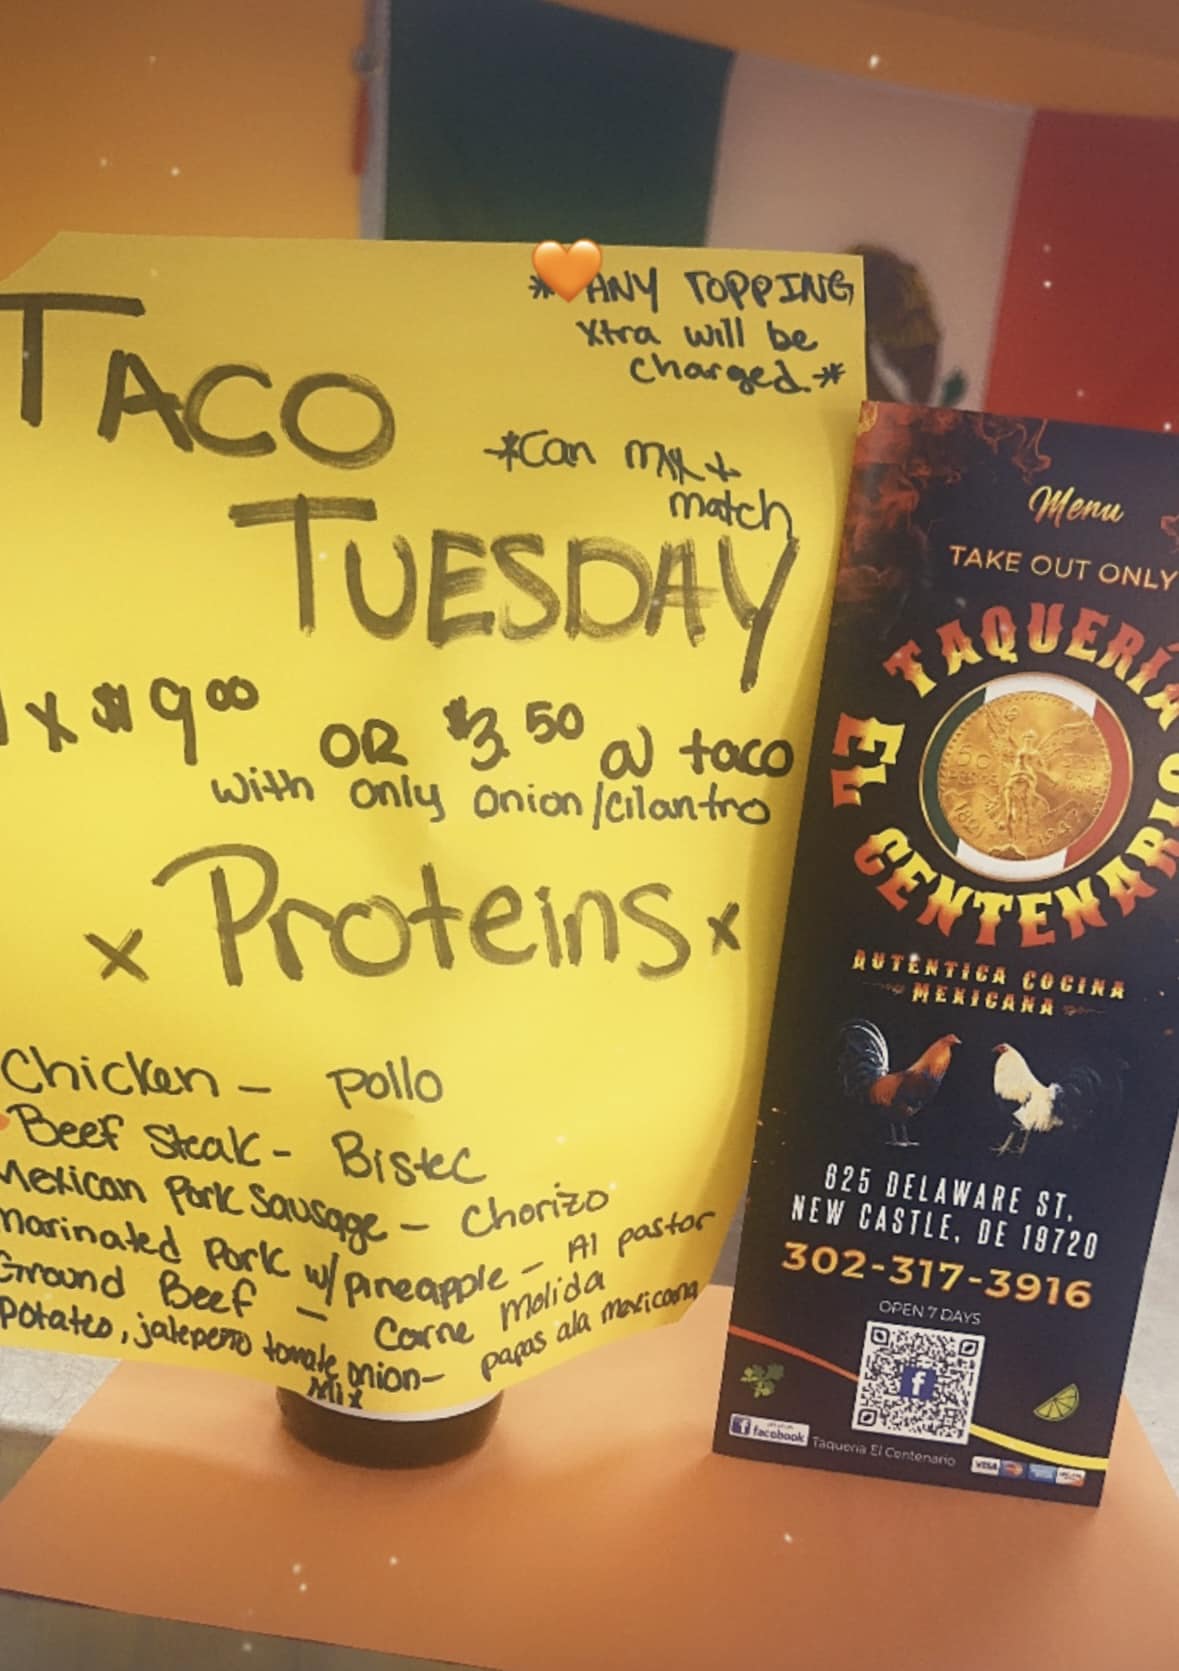 *ANY TOPPING
Xtra will be
charged.*
TACO
*Can mix +
match
TUESDAY
x $9.00
OR $3.50 a taco
with only onion/cilantro
x Proteins x
Chicken - pollo
Beef Steak - Bistec
Mexican Pork Sausage - Chorizo
Marinated Pork w/pineapple - Al pastor
Ground Beef - Carne Molida
Potatoes, jalepeno tomate onion - papas ala mexicana
Mix
Menu
TAKE OUT ONLY
TAQUERÍA
EL
CENTENARIO
50
1821
1947
AUTENTICA COCINA
MEXICANA
625 DELAWARE ST,
NEW CASTLE, DE 19720
302-317-3916
OPEN 7 DAYS
facebook Taqueria El Centenario
VISA